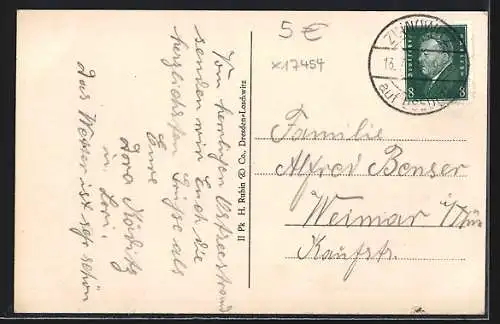 5 €
x17454
Vom herrlichen Ostseestrand
senden wir Euch die
herzlichsten Grüsse als
Eure
Dora Köditz
u. Lori.
Das Wasser ist sehr schön
II Pk H. Rubin & Co., Dresden-Loschwitz
auf
8 8
Familie
Alfred Benser
Weimar i/Thür
Kaufstr.